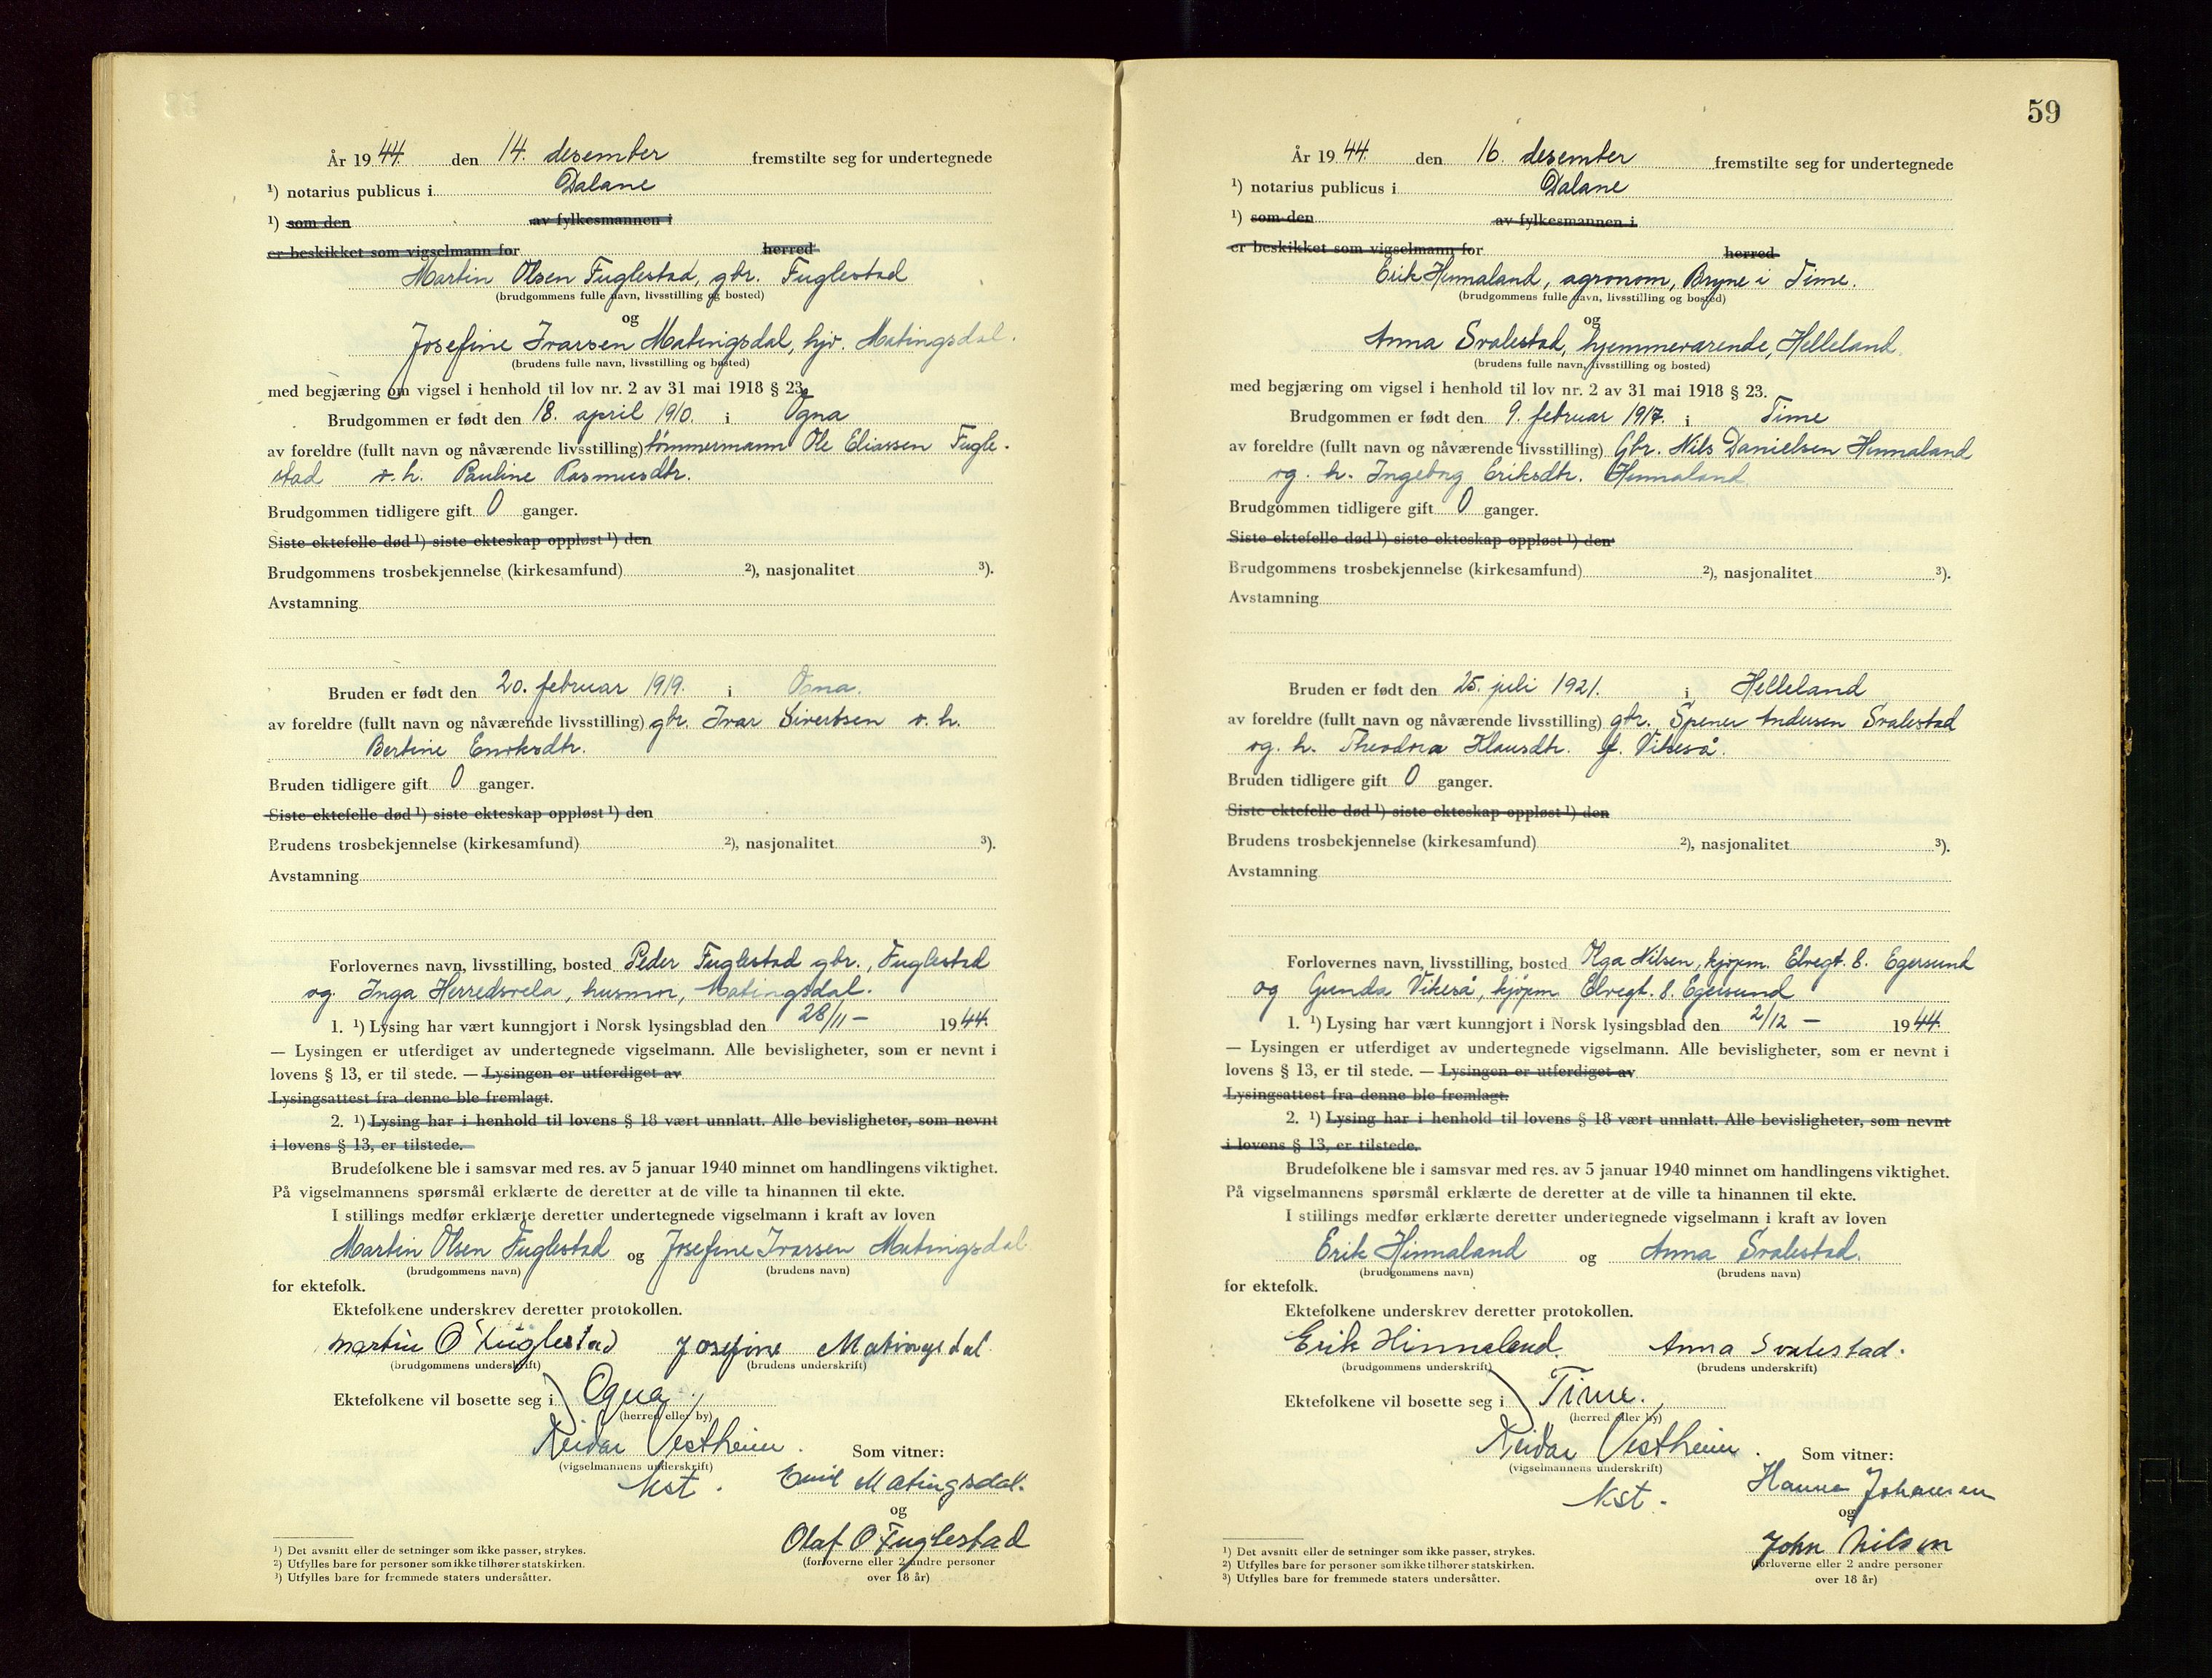 År 1944. den 14. desember fremstilte seg for undertegnede
¹) notarius publicus i Dalane
¹) som den av fylkesmannen i
er beskikket som vigselmann for herred
Martin Olsen Fuglestad, gbr. Fuglestad
(brudgommens fulle navn, livsstilling og bosted)
og
Josefine Ivarsen Matingsdal, hjv. Matingsdal.
(brudens fulle navn, livsstilling og bosted)
med begjæring om vigsel i henhold til lov nr. 2 av 31 mai 1918 § 23.
Brudgommen er født den 18. april 1910. i Ogna
av foreldre (fullt navn og nåværende livsstilling) tømmermann Ole Eliassen Fugle-
stad o. h. Pauline Rasmusdtr.
Brudgommen tidligere gift 0 ganger.
Siste ektefelle død ¹) siste ekteskap oppløst ¹) den
Brudgommens trosbekjennelse (kirkesamfund) ²), nasjonalitet ³).
Avstamning
Bruden er født den 20. februar 1919. i Ogna.
av foreldre (fullt navn og nåværende livsstilling) gbr. Ivar Sivertsen o. h.
Bertine
Bruden tidligere gift 0 ganger.
Siste ektefelle død ¹) siste ekteskap oppløst ¹) den
Brudens trosbekjennelse (kirkesamfund) ²), nasjonalitet ³).
Avstamning
Forlovernes navn, livsstilling, bosted Peder Fuglestad gbr., Fuglestad
og Inga Herredsvela, husmor, Matingsdal.
1. ¹) Lysing har vært kunngjort i Norsk lysingsblad den 28/11 – 1944.
— Lysingen er utferdiget av undertegnede vigselmann. Alle bevisligheter, som er nevnt i
lovens § 13, er til stede. — Lysingen er utferdiget av
Lysingsattest fra denne ble fremlagt.
2. ¹) Lysing har i henhold til lovens § 18 vært unnlatt. Alle bevisligheter, som nevnt
i lovens § 13, er tilstede.
Brudefolkene ble i samsvar med res. av 5 januar 1940 minnet om handlingens viktighet.
På vigselmannens spørsmål erklærte de deretter at de ville ta hinannen til ekte.
I stillings medfør erklærte deretter undertegnede vigselmann i kraft av loven
Martin Olsen Fuglestad og Josefine Ivarsen Matingsdal
(brudgommens navn) (brudens navn)
for ektefolk.
Ektefolkene underskrev deretter protokollen.
Martin O Fuglestad Josefine Matingsdal
(brudgommens underskrift) (brudens underskrift)
Ektefolkene vil bosette seg i Ogna.
(herred eller by)
Reidar Vestheim. Som vitner:
(vigselmannens underskrift)
kst. Emil Matingsdal.
og
Olaf O Fuglestad
(forloverne eller 2 andre personer
over 18 år)
¹) Det avsnitt eller de setninger som ikke passer, strykes.
²) Utfylles bare for personer som ikke tilhører statskirken.
³) Utfylles bare for fremmede staters undersåtter.
59
År 1944. den 16. desember fremstilte seg for undertegnede
¹) notarius publicus i Dalane
¹) som den av fylkesmannen i
er beskikket som vigselmann for herred
Erik Hinnaland, agronom, Bryne i Time.
(brudgommens fulle navn, livsstilling og bosted)
og
Anna Svalestad, hjemmeværende, Helleland.
(brudens fulle navn, livsstilling og bosted)
med begjæring om vigsel i henhold til lov nr. 2 av 31 mai 1918 § 23.
Brudgommen er født den 9. februar 1917. i Time
av foreldre (fullt navn og nåværende livsstilling) Gbr. Nils Danielsen Hinnaland
og h. Ingeborg Eriksdtr. Hinnaland
Brudgommen tidligere gift 0 ganger.
Siste ektefelle død ¹) siste ekteskap oppløst ¹) den
Brudgommens trosbekjennelse (kirkesamfund) ²), nasjonalitet ³).
Avstamning
Bruden er født den 25. juli 1921. i Helleland
av foreldre (fullt navn og nåværende livsstilling) gbr. Spener Andersen Svalestad
og. h. Theodora Klausdtr. f. Vikeså.
Bruden tidligere gift 0 ganger.
Siste ektefelle død ¹) siste ekteskap oppløst ¹) den
Brudens trosbekjennelse (kirkesamfund) ²), nasjonalitet ³).
Avstamning
Forlovernes navn, livsstilling, bosted Olga Nilsen, kjøpm. Elvegt. 8. Egersund
og Gunda Vikeså, kjøpm Elvegt. 8. Egersund
1. ¹) Lysing har vært kunngjort i Norsk lysingsblad den 2/12 – 1944.
— Lysingen er utferdiget av undertegnede vigselmann. Alle bevisligheter, som er nevnt i
lovens § 13, er til stede. — Lysingen er utferdiget av
Lysingsattest fra denne ble fremlagt.
2. ¹) Lysing har i henhold til lovens § 18 vært unnlatt. Alle bevisligheter, som nevnt
i lovens § 13, er tilstede.
Brudefolkene ble i samsvar med res. av 5 januar 1940 minnet om handlingens viktighet.
På vigselmannens spørsmål erklærte de deretter at de ville ta hinannen til ekte.
I stillings medfør erklærte deretter undertegnede vigselmann i kraft av loven
Erik Hinnaland og Anna Svalestad.
(brudgommens navn) (brudens navn)
for ektefolk.
Ektefolkene underskrev deretter protokollen.
Erik Hinnaland. Anna Svalestad.
(brudgommens underskrift) (brudens underskrift)
Ektefolkene vil bosette seg i Time.
(herred eller by)
Reidar Vestheim. Som vitner:
(vigselmannens underskrift)
kst. Hanna Johansen
og
John Nilsen
(forloverne eller 2 andre personer
over 18 år)
¹) Det avsnitt eller de setninger som ikke passer, strykes.
²) Utfylles bare for personer som ikke tilhører statskirken.
³) Utfylles bare for fremmede staters undersåtter.